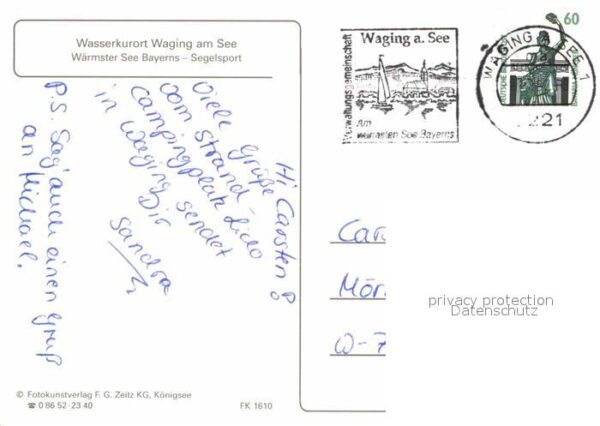 Wasserkurort Waging am See
Wärmster See Bayerns – Segelsport
Hi Carsten!
Viele Grüße
vom Strand-
campingplatz Lido
in Waging sendet
Dir
Sandra
P.S. Sag' auch einen Gruß
an Michael.
© Fotokunstverlag F. G. Zeitz KG, Königsee
☎ 0 86 52-23 40
FK 1610
Verwaltungsgemeinschaft
Waging a. See
Am
wärmsten See Bayerns
WAGING SEE 1
21
60
Car
Mör
W-7
privacy protection
Datenschutz